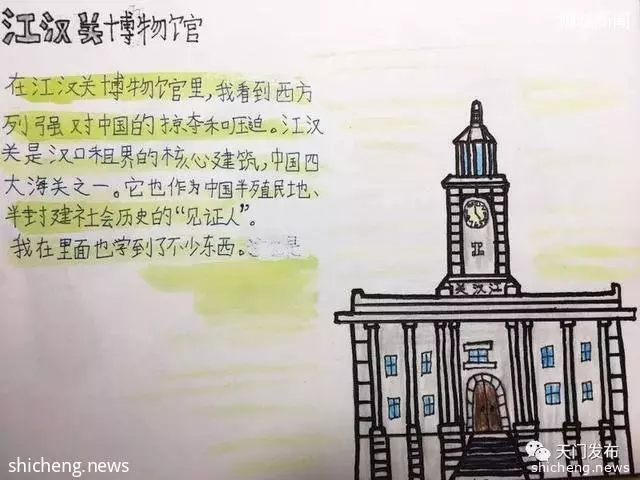 江汉关博物馆
在江汉关博物馆里，我看到西方
列强对中国的掠夺和压迫。江汉
关是汉口租界的核心建筑，中国四
大海关之一。它也作为中国半殖民地、
半封建社会历史的“见证人”。
我在里面也学到了不少东西。
关汉江
天门发布
shicheng.news
shicheng.news